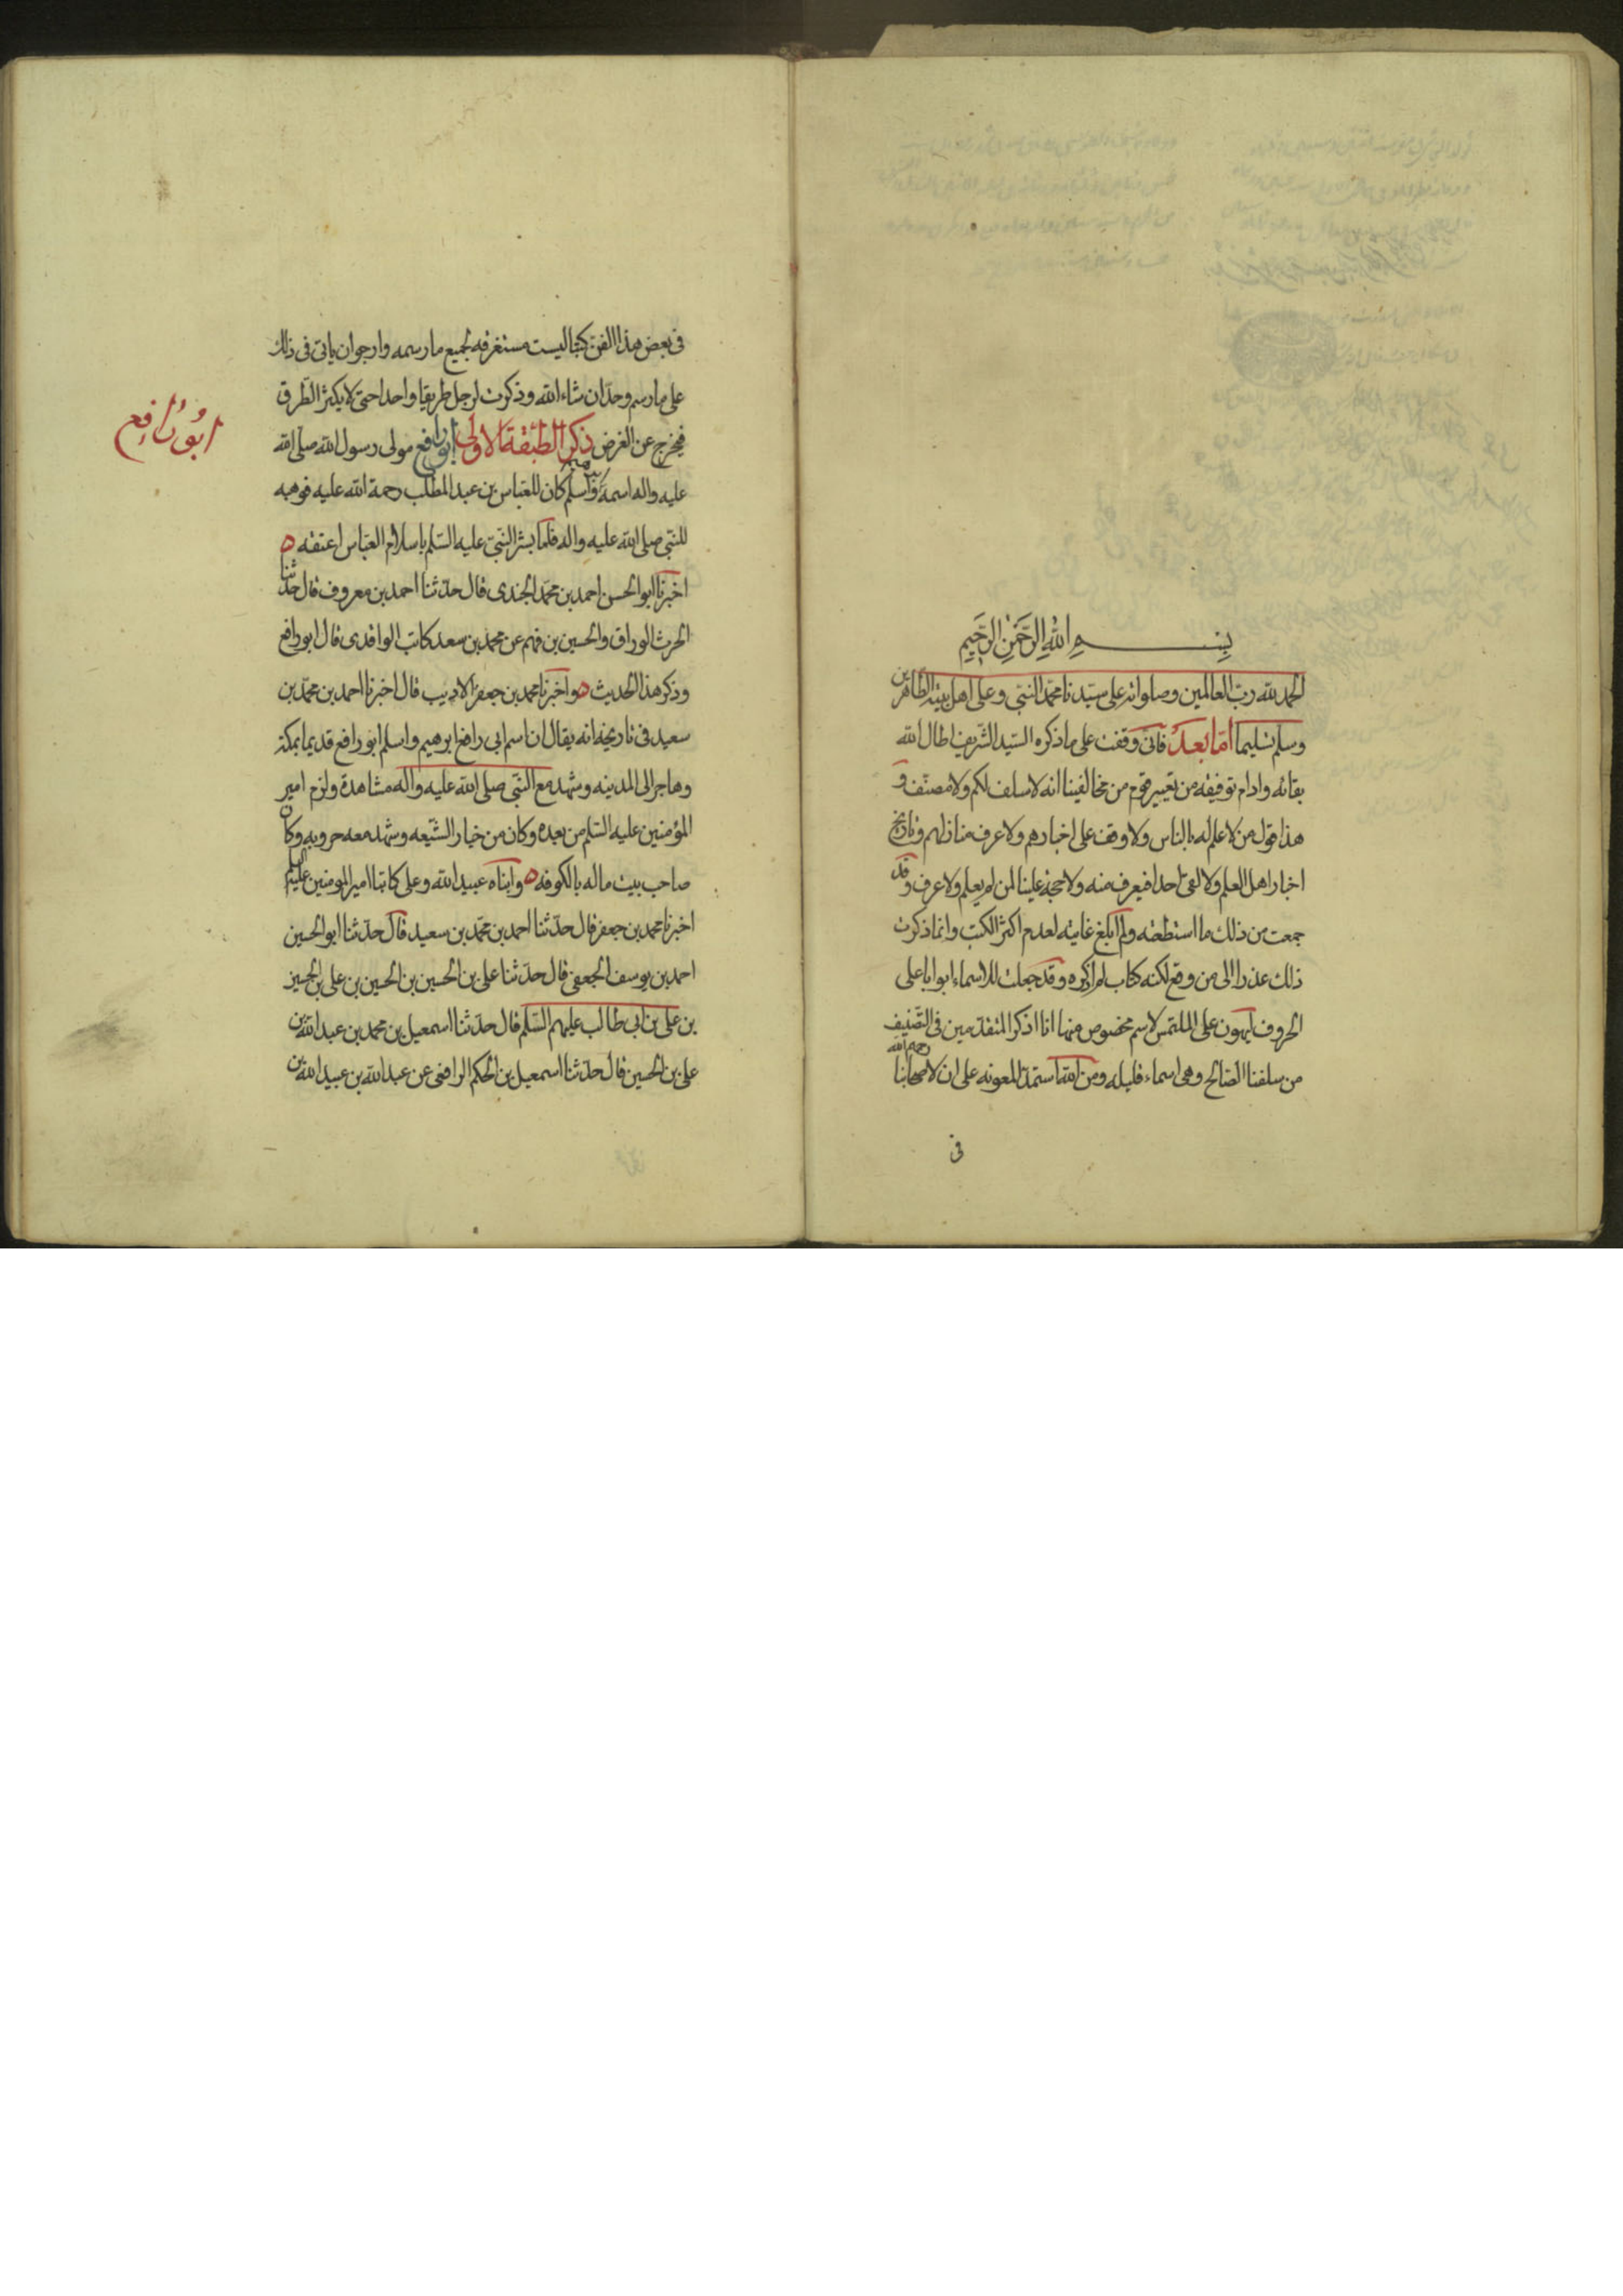 بسم الله الرحمن الرحيم
الحمد لله رب العالمين وصلواته على سيدنا محمد النبي وعلى اهل بيته الطاهرين
وسلم تسليما اما بعد فانى وقفت على ما ذكره السيد الشريف اطال الله
بقائه وادام توفيقه من تعيير قوم من مخالفينا انه لا سلف لكم ولا مصنف و
هذا قول من لا علم له بالناس ولا وقف على اخبارهم ولا عرف منازلهم وتاريخ
اخبار اهل العلم ولا لقى احدا فيعرف منه ولا حجة علينا لمن لم يعلم ولا عرف وقد
جمعت من ذلك ما استطعته ولم ابلغ غايته لعدم اكثر الكتب وانما ذكرت
ذلك عذرا الى من وقع لكنه كتاب لم اذكره وقد جعلت للاسماء ابوابا على
الحروف ليهون على الملتمس لاسم مخصوص منها انا اذكر المتقدمين فى التصنيف
من سلفنا الصالح رحمهم الله وهى اسماء قليله ومن الله استمد المعونه على ان لاصحابنا
فى
فى بعض هذا الفن كتبا ليست مستغرقه لجميع ما رسمه وارجو ان ياتى فى ذلك
على ما رسم وحد ان شاء الله وذكرت لرجل طريقا واحدا حتى لا يكثر الطرق
فيخرج عن الغرض ذكر الطبقة الاولى ابو رافع مولى رسول الله صلى الله
عليه واله اسمه اسلم كان للعباس بن عبد المطلب رحمة الله عليه فوهبه
للنبى صلى الله عليه واله فلما بشر النبى عليه السلم باسلام العباس اعتقه ه
اخبرنا ابو الحسن احمد بن محمد الجندى قال حدثنا احمد بن معروف قال حدثنا
الحرث الوراق والحسين بن فهم عن محمد بن سعد كاتب الواقدى قال ابو رافع
وذكر هذا الحديث ه واخبرنا محمد بن جعفر الاديب قال اخبرنا احمد بن محمد بن
سعيد فى تاريخه انه يقال ان اسم ابى رافع ابرهيم واسلم ابو رافع قديما بمكة
وهاجر الى المدينه وشهد مع النبى صلى الله عليه واله مشاهدة ولزم امير
المؤمنين عليه السلم من بعده وكان من خيار الشيعه وشهد معه حروبه وكان
صاحب بيت ماله بالكوفه ه وابناه عبيد الله وعلى كاتبا امير المومنين عليه السلم
اخبرنا محمد بن جعفر قال حدثنا احمد بن محمد بن سعيد قال حدثنا ابو الحسين
احمد بن يوسف الجعفى قال حدثنا على بن الحسين بن الحسين بن على بن الحسين
بن على بن ابى طالب عليهم السلم قال حدثنا اسمعيل بن محمد بن عبد الله بن
على بن الحسين قال حدثنا اسمعيل بن الحكم الرافعى عن عبد الله بن عبيد الله بن
ابو رافع